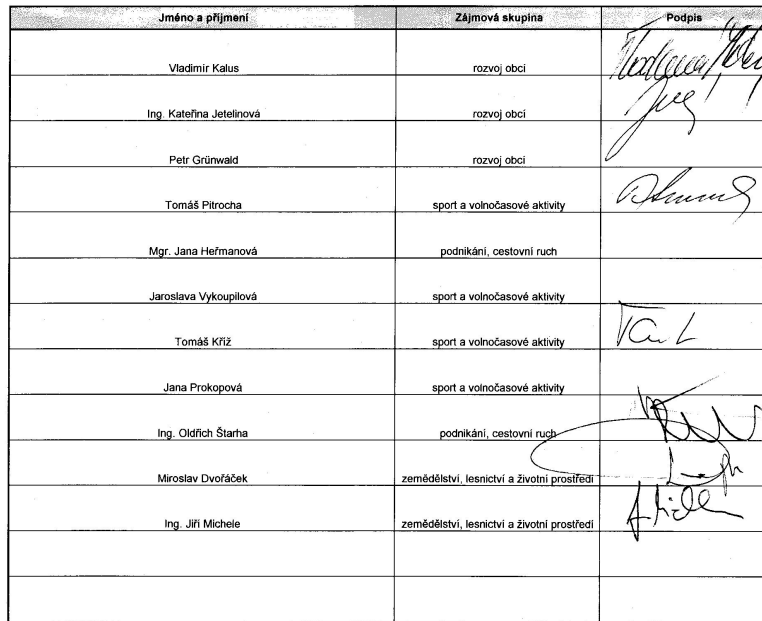 Jméno a příjmení Zájmová skupina Podpis
Vladimír Kalus rozvoj obcí
Ing. Kateřina Jetelinová rozvoj obcí
Petr Grünwald rozvoj obcí
Tomáš Pitrocha sport a volnočasové aktivity
Mgr. Jana Heřmanová podnikání, cestovní ruch
Jaroslava Vykoupilová sport a volnočasové aktivity
Tomáš Kříž sport a volnočasové aktivity
Jana Prokopová sport a volnočasové aktivity
Ing. Oldřich Štarha podnikání, cestovní ruch
Miroslav Dvořáček zemědělství, lesnictví a životní prostředí
Ing. Jiří Michele zemědělství, lesnictví a životní prostředí